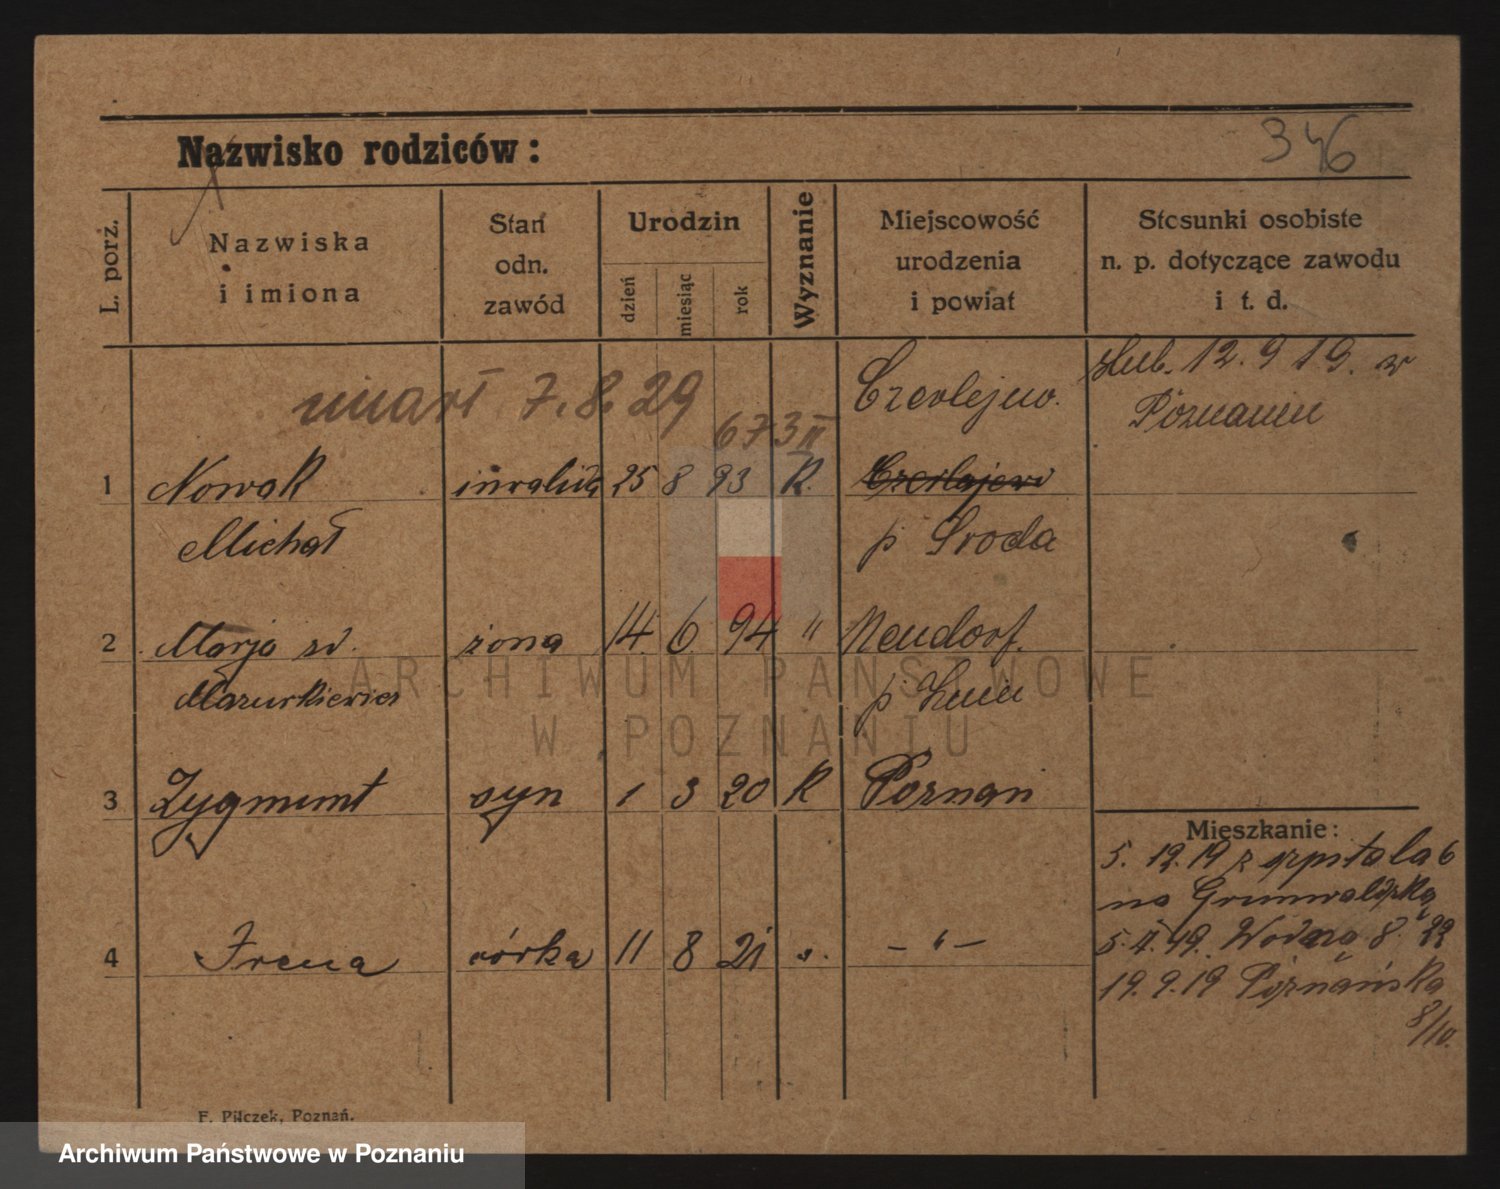 Nazwisko rodziców:
346
L. porż.
Nazwiska
i imiona
Stan
odn.
zawód
Urodzin
dzień
miesiąc
rok
Wyznanie
Miejscowość
urodzenia
i powiat
Stosunki osobiste
n. p. dotyczące zawodu
i t. d.
umarł 7.8.29
673 II
Czerlejno.
ślub. 12.9 19. w
Poznaniu
1 Nowak inwalida 25 8 93 K.
Michał p Środa
2 Marja sd. żona 14 6 94 " Neudorf.
Mazurkiewicz p Żnin
3 Zygmunt syn 1 3 20 K Poznań
4 Irena córka 11 8 21 ". – " –
Mieszkanie:
5. 12.19 z szpitala 6
na Grunwaldzką
Wodna 8.
19.9.19 Poznańska
8/10.
F. Pilczek, Poznań.
ARCHIWUM PAŃSTWOWE
W POZNANIU
Archiwum Państwowe w Poznaniu